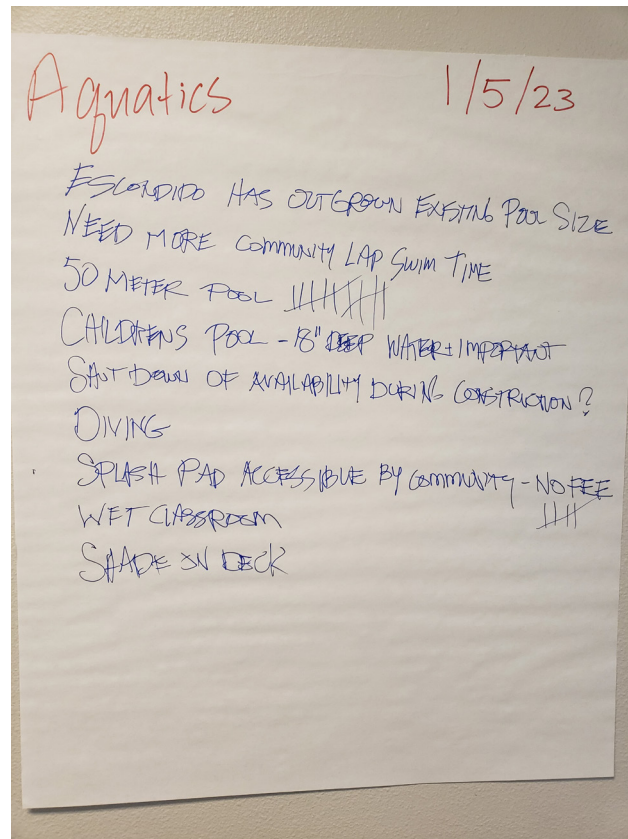 Aquatics 1/5/23
ESCONDIDO HAS OUTGROWN EXISTING POOL SIZE
NEED MORE COMMUNITY LAP SWIM TIME
50 METER POOL
CHILDRENS POOL - 18" DEEP WATER IMPORTANT
SHUT DOWN OF AVAILABILITY DURING CONSTRUCTION?
DIVING
SPLASH PAD ACCESSIBLE BY COMMUNITY - NO FEE
WET CLASSROOM
SHADE ON DECK